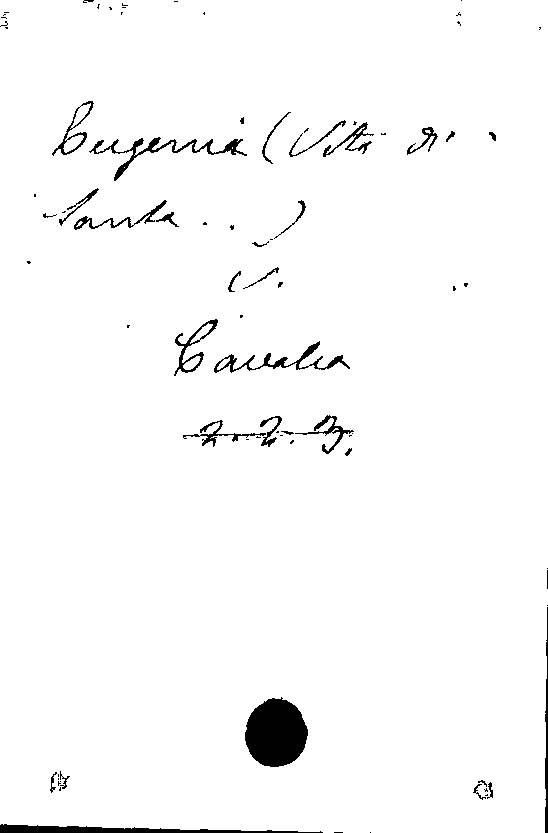 Eugenia (Vita di
Santa . . )
V.
Cavalca
2. 2. 3.